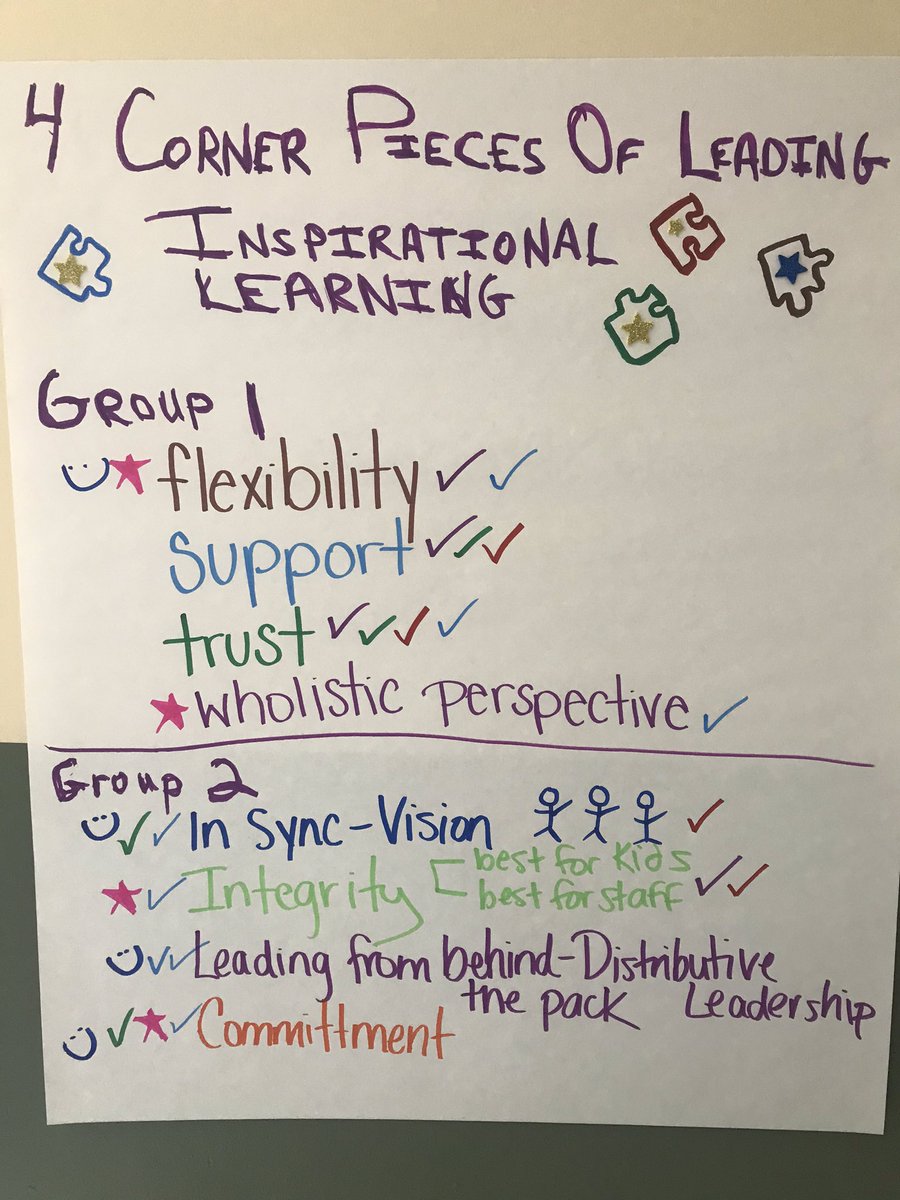 4 CORNER PIECES OF LEADING
INSPIRATIONAL
LEARNING
GROUP 1
flexibility
Support
trust
wholistic perspective
Group 2
In Sync-Vision
Integrity best for kids
best for staff
Leading from behind-Distributive
the pack Leadership
Committment